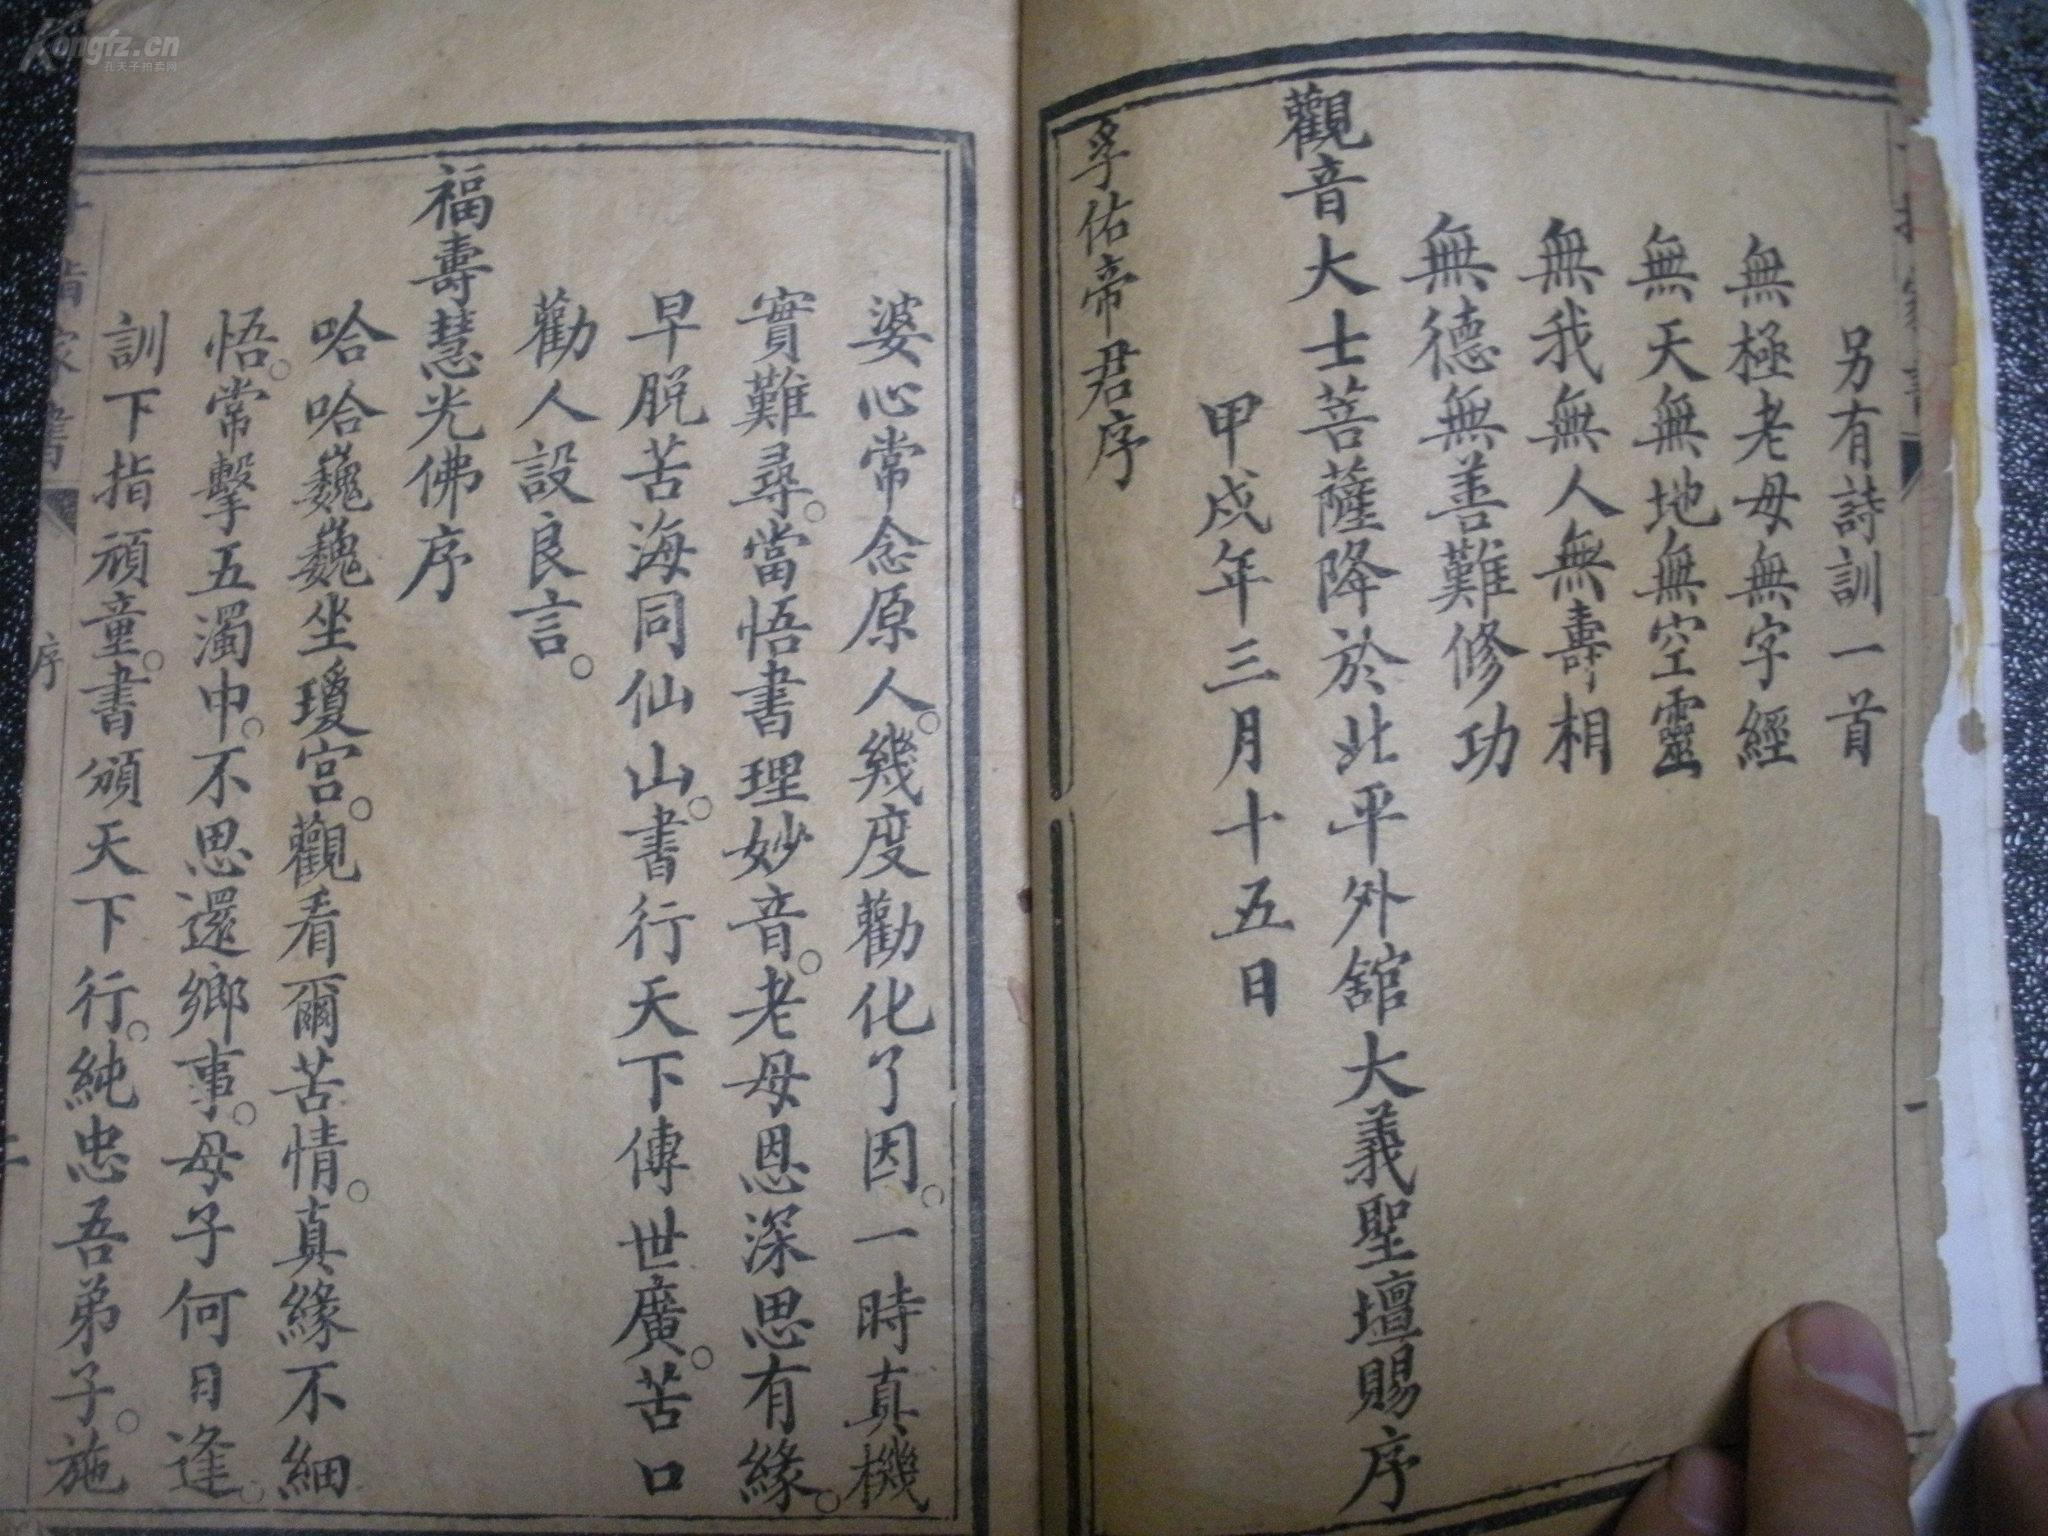 另有詩訓一首
無極老母無字經
無天無地無空靈
無我無人無壽相
無德無善難修功
觀音大士菩薩降於北平外舘大義聖壇賜序
甲戍年三月十五日
孚佑帝君序
婆心常念原人。幾度勸化了因。一時真機
實難尋。當悟書理妙音。老母恩深思有緣。
早脱苦海同仙山。書行天下傳世廣。苦口
勸人設良言。
福壽慧光佛序
哈哈巍巍坐瓊宮。觀看爾苦情。真緣不細
悟。常擊五濁中。不思還鄉事。母子何日逢。
訓下指頑童。書頒天下行。純忠吾弟子。施
指家書
序
二
Kongfz.cn
孔夫子拍卖网